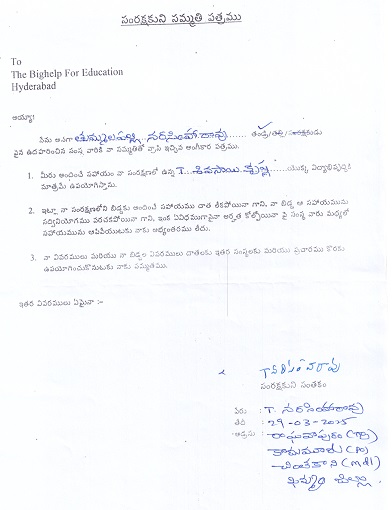 సంరక్షకుని సమ్మతి పత్రము
To
The Bighelp For Education
Hyderabad
అయ్యా!
నేను అనగా తుమ్మలపల్లి నరసింహారావు...... తండ్రి/తల్లి/సంరక్షకుడు
పైన ఉదహరించిన సంస్థ వారికి నా సమ్మతితో వ్రాసి ఇచ్చిన అంగీకార పత్రము.
1. మీరు అందించే సహాయం నా సంరక్షణలో ఉన్న T. శివసాయి కృష్ణ ......యొక్క విద్యాభివృద్ధికి
మాత్రమే ఉపయోగిస్తాను.
2. ఇట్లా నా సంరక్షణలోని బిడ్డకు అందించే సహాయము దాత లేకపోయినా గాని, నా బిడ్డ ఆ సహాయమును
సద్వినియోగము పరచకపోయినా గాని, ఇంక ఏవిధముగానైనా అర్హత కోల్పోయినా పై సంస్థ వారు మధ్యలో
సహాయమును ఆపివేయుటకు నాకు అభ్యంతరము లేదు.
3. నా వివరములు మరియు నా బిడ్డల వివరములు దాతలకు ఇతర సంస్థలకు మరియు ప్రచారము కొరకు
ఉపయోగించుకొనుటకు నాకు సమ్మతము.
ఇతర వివరములు ఏమైనా :-
సంరక్షకుని సంతకం
పేరు : T. నరసింహారావు
తేది : 29-03-2015
అడ్రసు : రాఘవాపురం
చింతకాని (mdl)
ఖమ్మం జిల్లా.